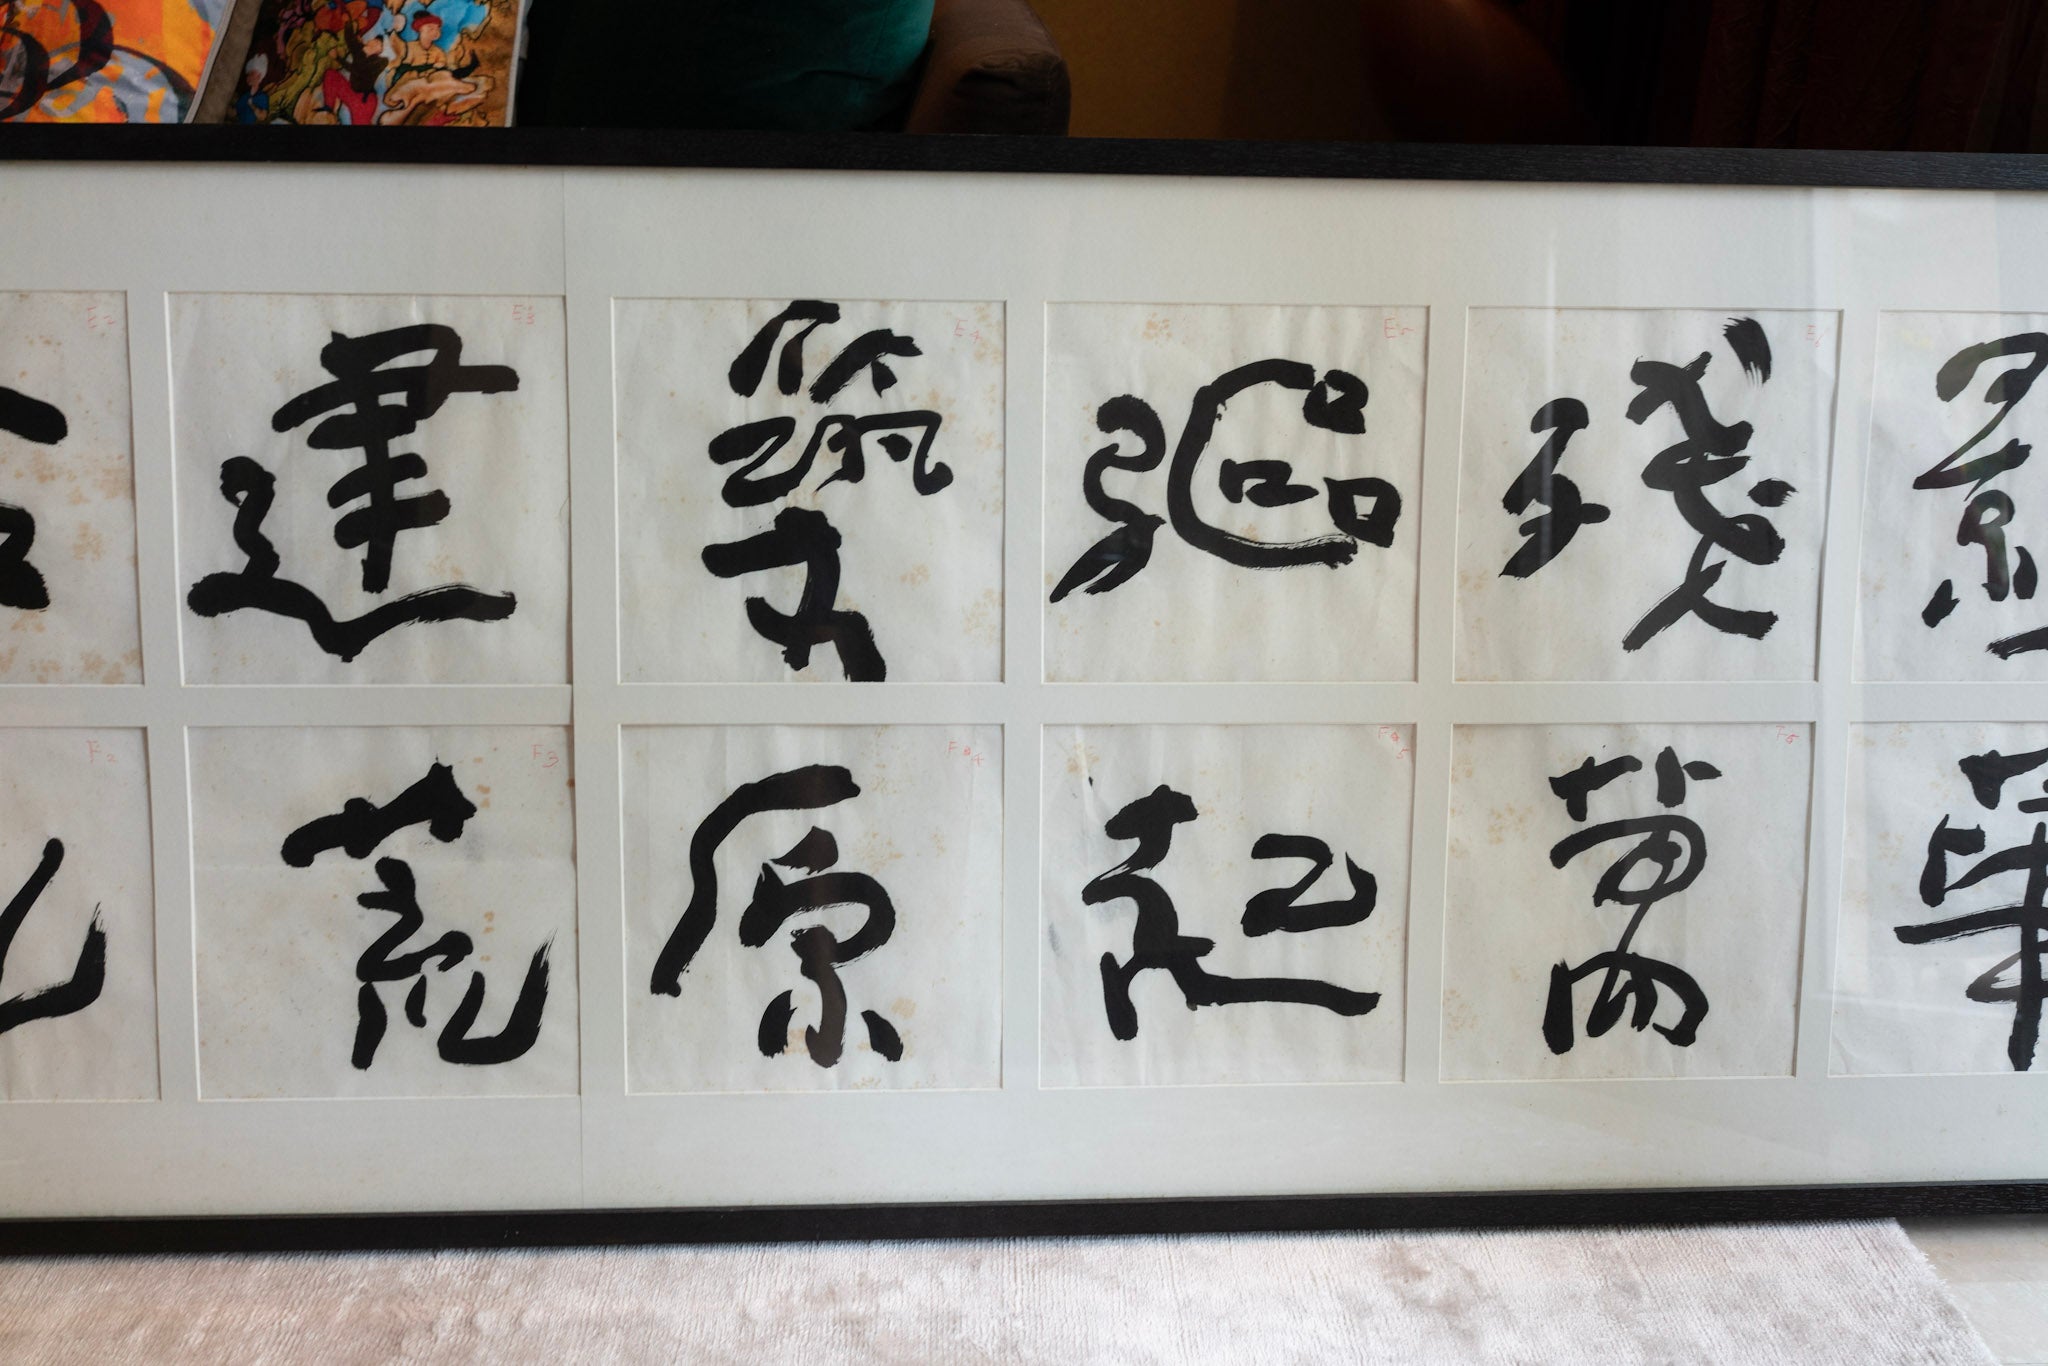 E2 E3 E4 E5 E6
建 築 驅 殘
F2 F3 F4 F5 F6
荒 原 起 萬